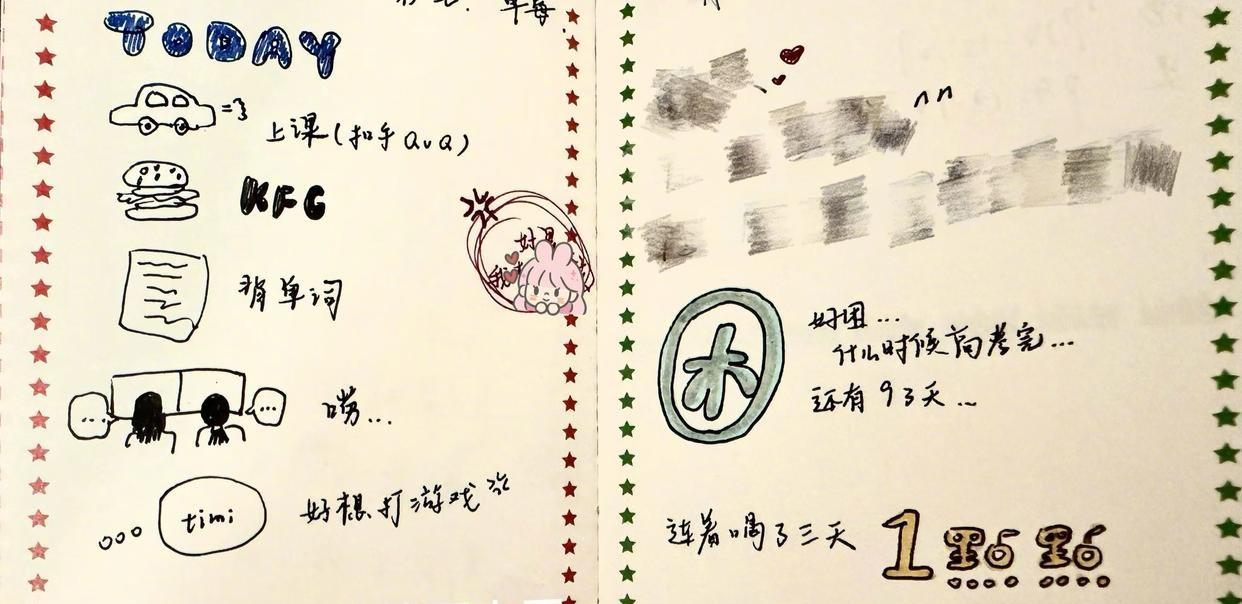 草莓
TODAY
上课(扣手QuQ)
KFC
背单词
唠...
timi
好想打游戏
好困...
什么时候高考完...
还有93天...
连着喝了三天 1點點